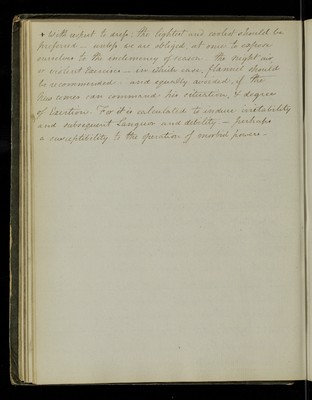 + With respect to dress, the lightest and coolest should be
preferred — unless we are obliged, at once to expose
ourselves to the inclemency of season — the night air,
or violent Exercise — in which case, flannel should
be recommended — and equally avoided, if the
New comer can command his situation, & degree
of Exertion. For it is calculated to induce irritability
and subsequent Languor and debility — perhaps
a susceptibility to the operation of morbid powers. —